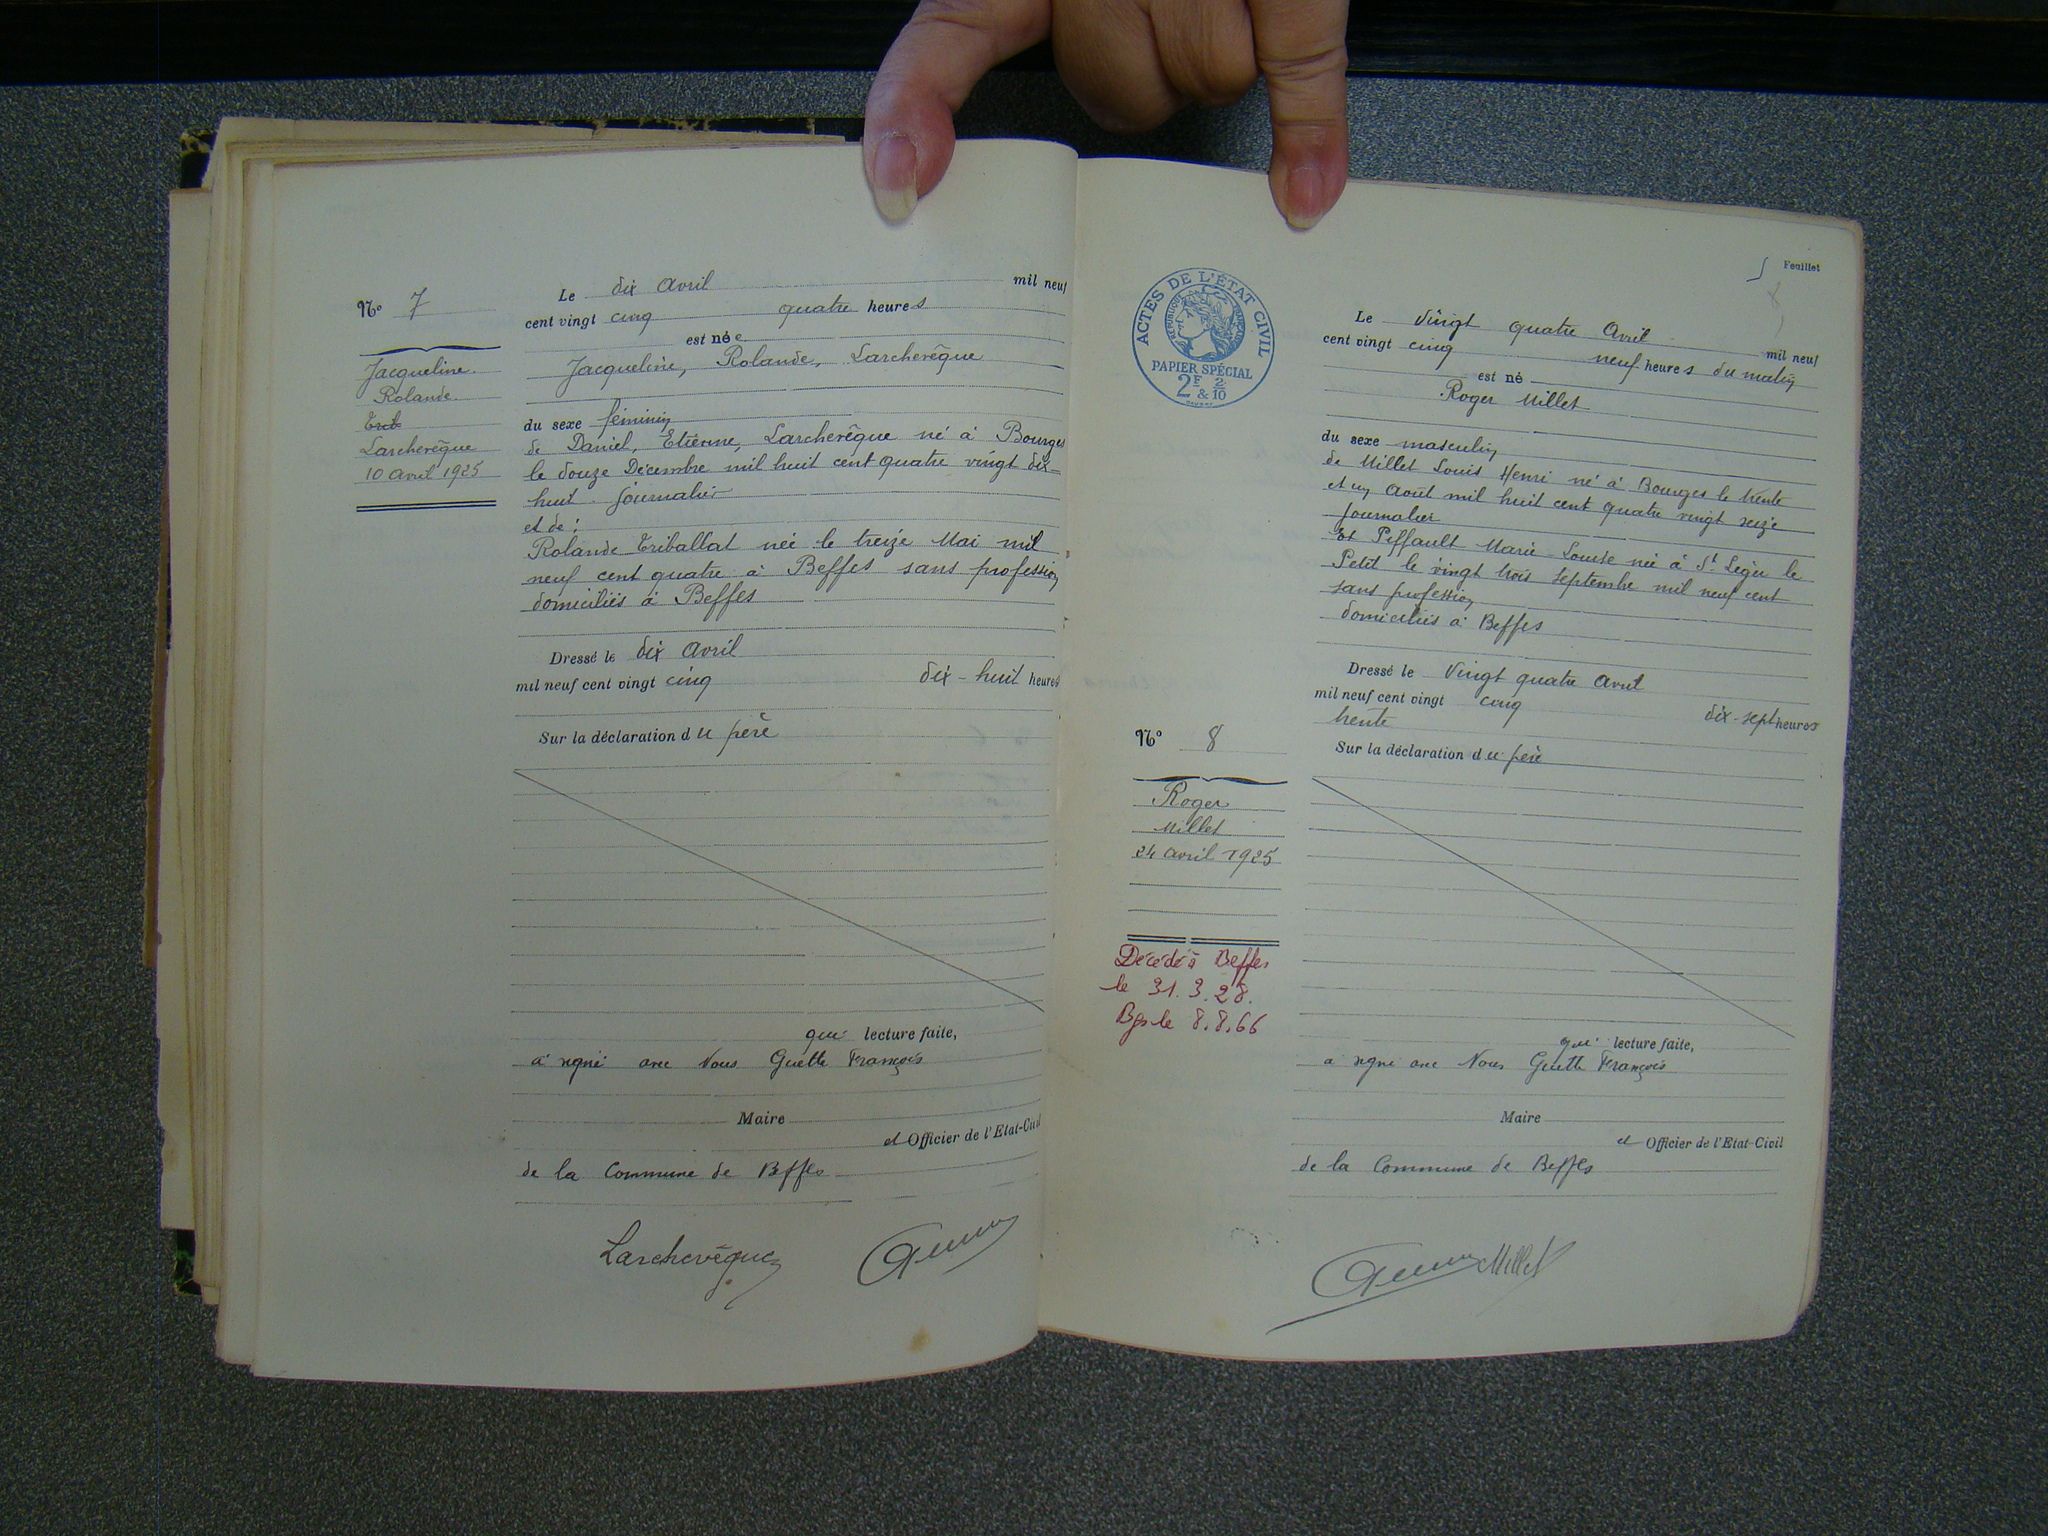 Nº 7
Jacqueline
Rolande
Larchevêque
10 Avril 1925
Le dix Avril mil neuf
cent vingt cinq quatre heures
est née
Jacqueline, Rolande, Larchevêque
du sexe féminin
de Daniel, Etienne, Larchevêque né à Bourges
le douze Décembre mil huit cent quatre vingt dix-
huit journalier
et de :
Rolande Triballat née le treize Mai mil
neuf cent quatre à Beffes sans profession
domiciliés à Beffes
Dressé le dix Avril
mil neuf cent vingt cinq dix-huit heures
Sur la déclaration du père
qui lecture faite,
a signé avec Nous Guette François
Maire
et Officier de l'Etat-Civil
de la Commune de Beffes
Larchevêque
Feuillet
ACTES DE L'ÉTAT CIVIL
RÉPUBLIQUE FRANÇAISE
PAPIER SPÉCIAL
2F & 2/10
Nº 8
Roger
Millet
24 Avril 1925
Décédé à Beffes
le 31.3.28.
Bgs le 8.8.66
Le Vingt quatre Avril mil neuf
cent vingt cinq neuf heures du matin
est né
Roger Millet
du sexe masculin
de Millet Louis Henri né à Bourges le trente
et un Août mil huit cent quatre vingt seize
journalier
Et Piffault Marie-Louise née à St Léger le
Petit le vingt trois septembre mil neuf cent
sans profession
domiciliés à Beffes
Dressé le Vingt quatre Avril
mil neuf cent vingt cinq dix-sept heures
trente
Sur la déclaration du père
qui lecture faite,
a signé avec Nous Guette François
Maire
et Officier de l'Etat-Civil
de la Commune de Beffes
Millet